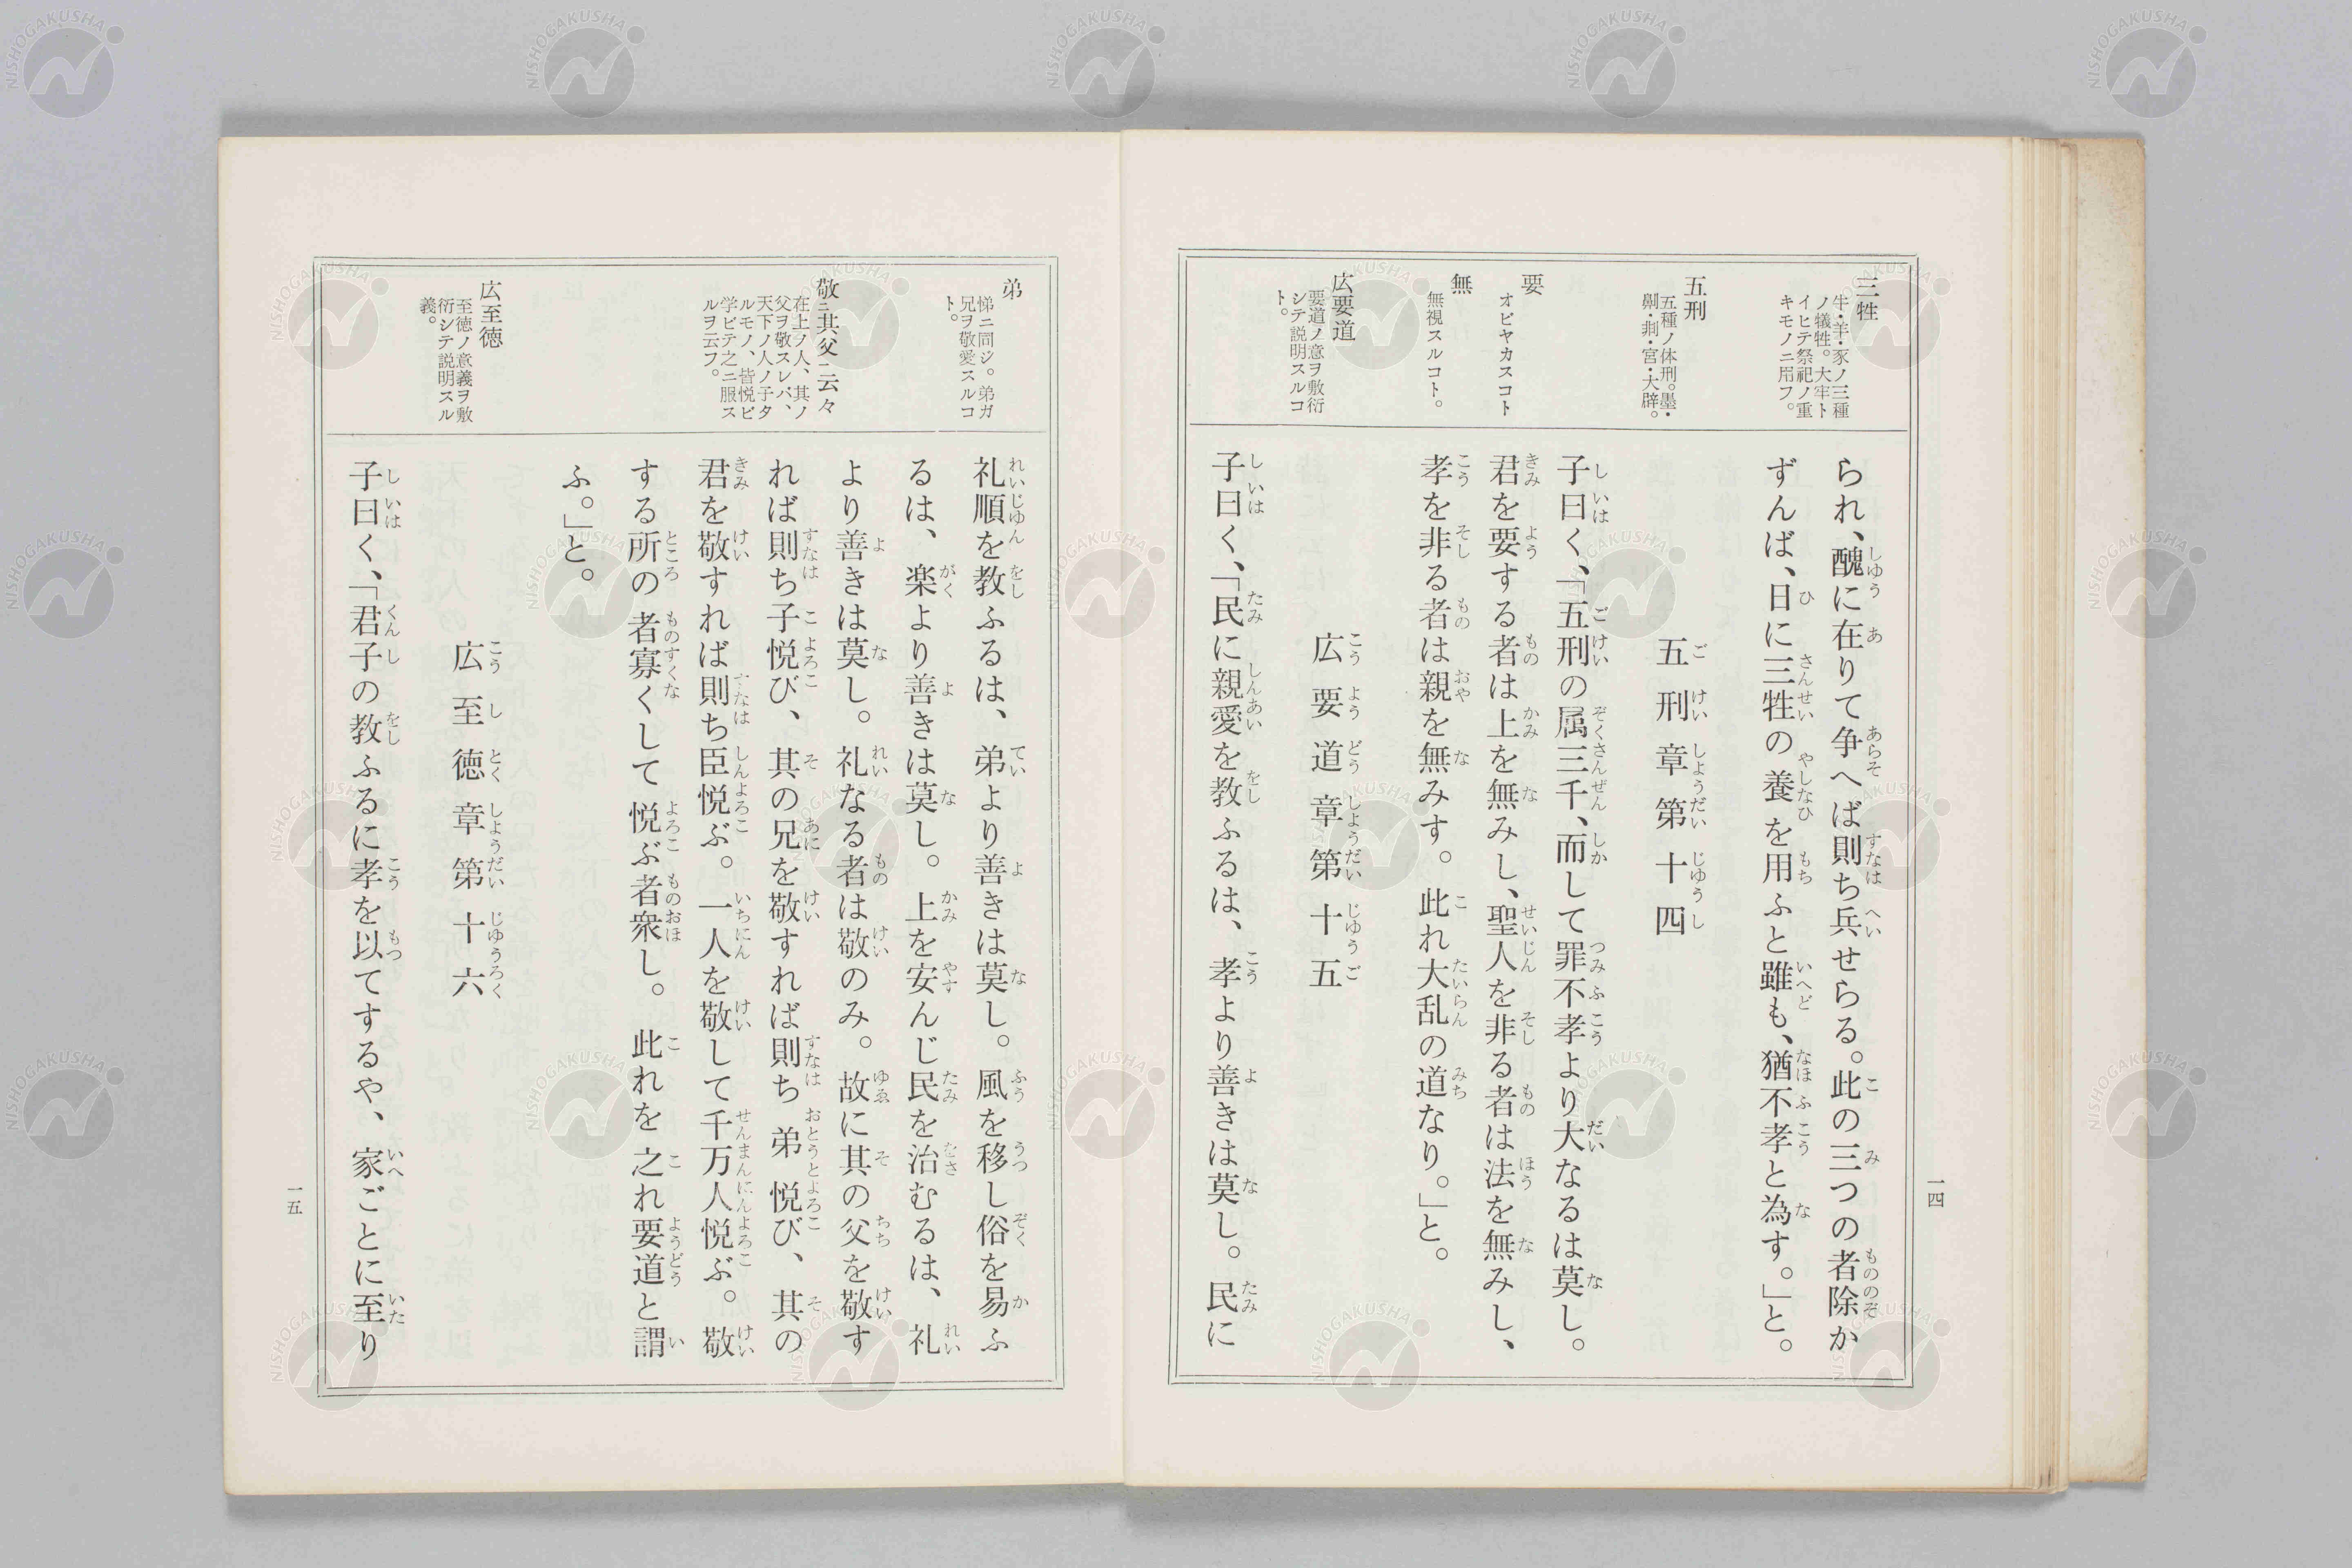 三牲
牛・羊・豕ノ三種
ノ犠牲。大牢ト
イヒテ祭祀ノ重
キモノニ用フ。
五刑
五種ノ体刑。墨・
劓・剕・宮・大辟。
要
オビヤカスコト
無
無視スルコト。
広要道
要道ノ意ヲ敷衍
シテ説明スルコ
ト。
られ、醜に在りて争へば則ち兵せらる。此の三つの者除か
ずんば、日に三牲の養を用ふと雖も、猶不孝と為す。」と。
五刑章第十四
子曰く、「五刑の属三千、而して罪不孝より大なるは莫し。
君を要する者は上を無みし、聖人を非る者は法を無みし、
孝を非る者は親を無みす。此れ大乱の道なり。」と。
広要道章第十五
子曰く、「民に親愛を教ふるは、孝より善きは莫し。民に
一四
弟
悌ニ同ジ。弟ガ
兄ヲ敬愛スルコ
ト。
敬ニ其父ニ云々
在上ノ人、其ノ
父ヲ敬スレバ、
天下ノ人ノ子タ
ルモノ、皆悦ビ
学ビテ之ニ服ス
ルヲ云フ。
広至徳
至徳ノ意義ヲ敷
衍シテ説明スル
義。
礼順を教ふるは、弟より善きは莫し。風を移し俗を易ふ
るは、楽より善きは莫し。上を安んじ民を治むるは、礼
より善きは莫し。礼なる者は敬のみ。故に其の父を敬す
れば則ち子悦び、其の兄を敬すれば則ち弟悦び、其の
君を敬すれば則ち臣悦ぶ。一人を敬して千万人悦ぶ。敬
する所の者寡くして悦ぶ者衆し。此れを之れ要道と謂
ふ。」と。
広至徳章第十六
子曰く、「君子の教ふるに孝を以てするや、家ごとに至り
一五